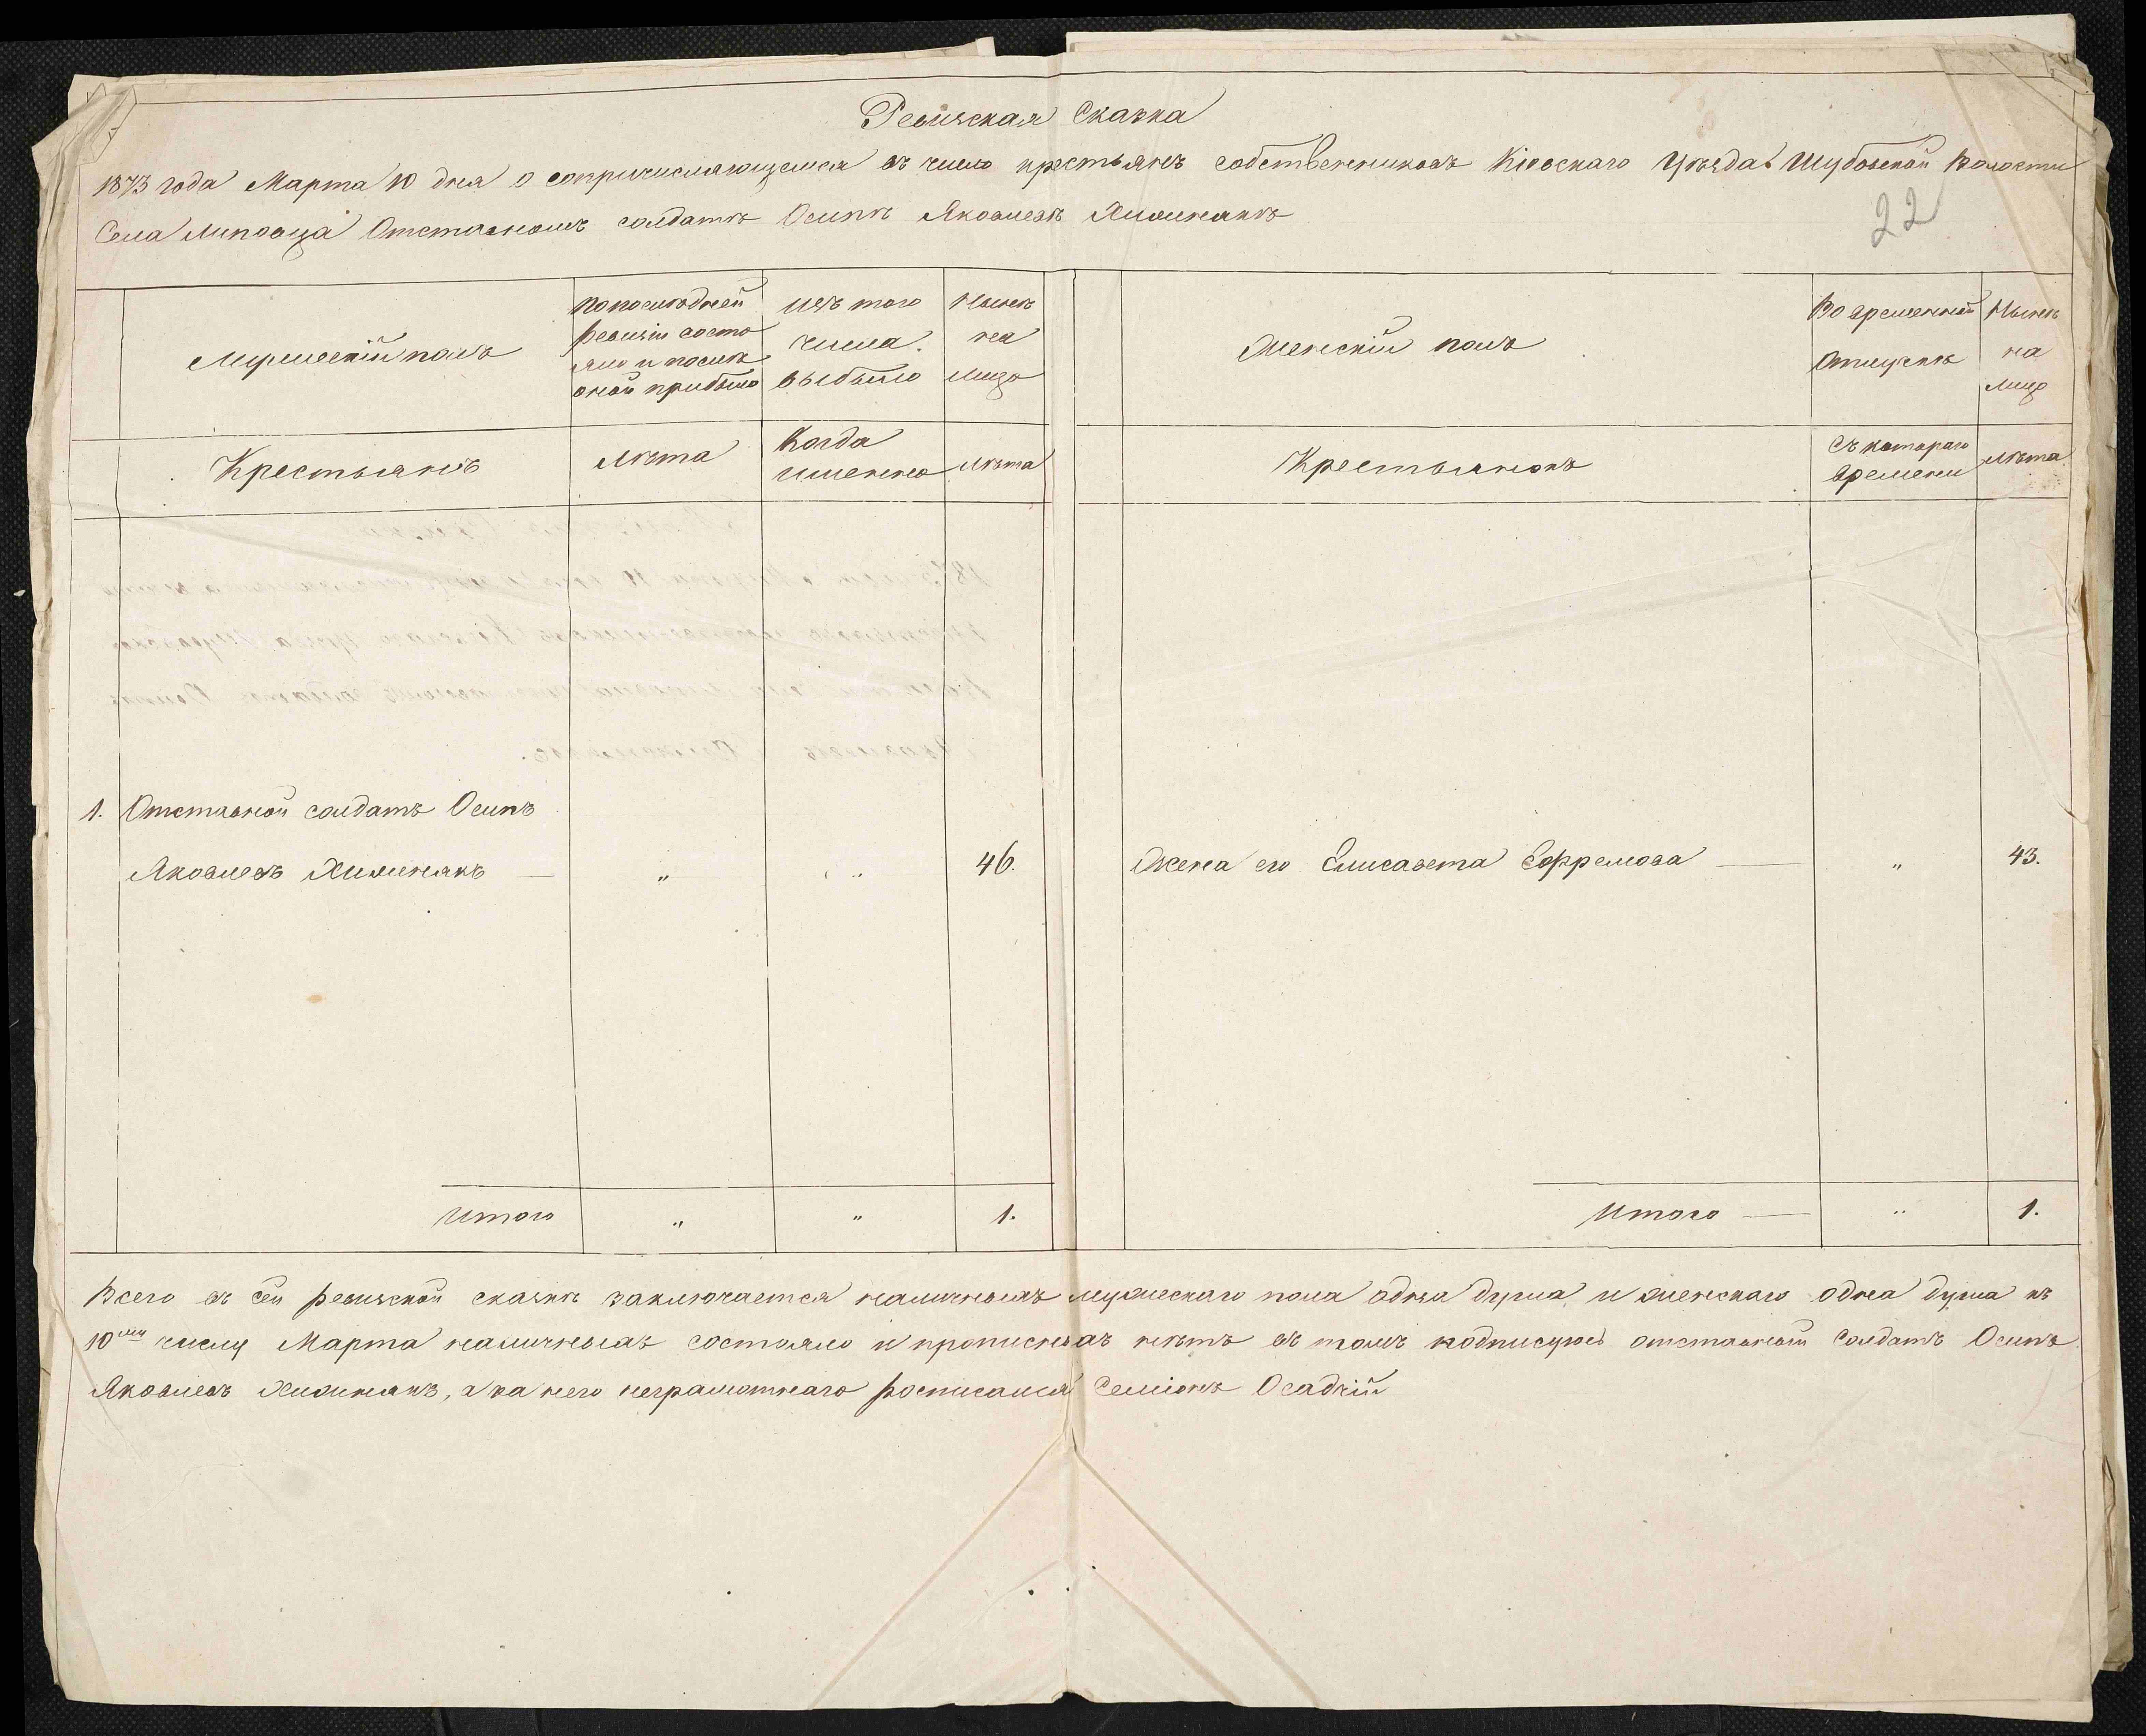 Ревизская Сказка
1873 года Марта 10 дня о сопричисляющемся въ число крестьянъ собственниковъ Кіевскаго Уѣзда Шубовской Волости
Села Липовца Отставномъ солдатѣ Осипѣ Яковлевѣ
22
Мужескій полъ
По послѣдней ревизіи состояло и послѣ оной прибыло
Изъ того числа выбыло
Нынѣ на лицо
Женскій полъ
Во временной отлучкѣ
Нынѣ на лицо
Крестьянъ
Лѣта
Когда именно
Лѣта
Крестьянокъ
Съ котораго времени
Лѣта
1. Отставной солдатъ Осипъ
Яковлевъ — „ „ 46. Жена его Елисавета Ефремова — „ 43.
Итого „ „ 1. Итого — „ 1.
Всего въ сей ревизской сказкѣ заключается наличныхъ мужескаго пола одна душа и женскаго одна душа къ
10му числу Марта наличныхъ состояло и прописныхъ нѣтъ въ томъ подписуюсь отставный солдатъ Осипъ
Яковлевъ а за него неграмотнаго росписался Семіонъ Осадчій